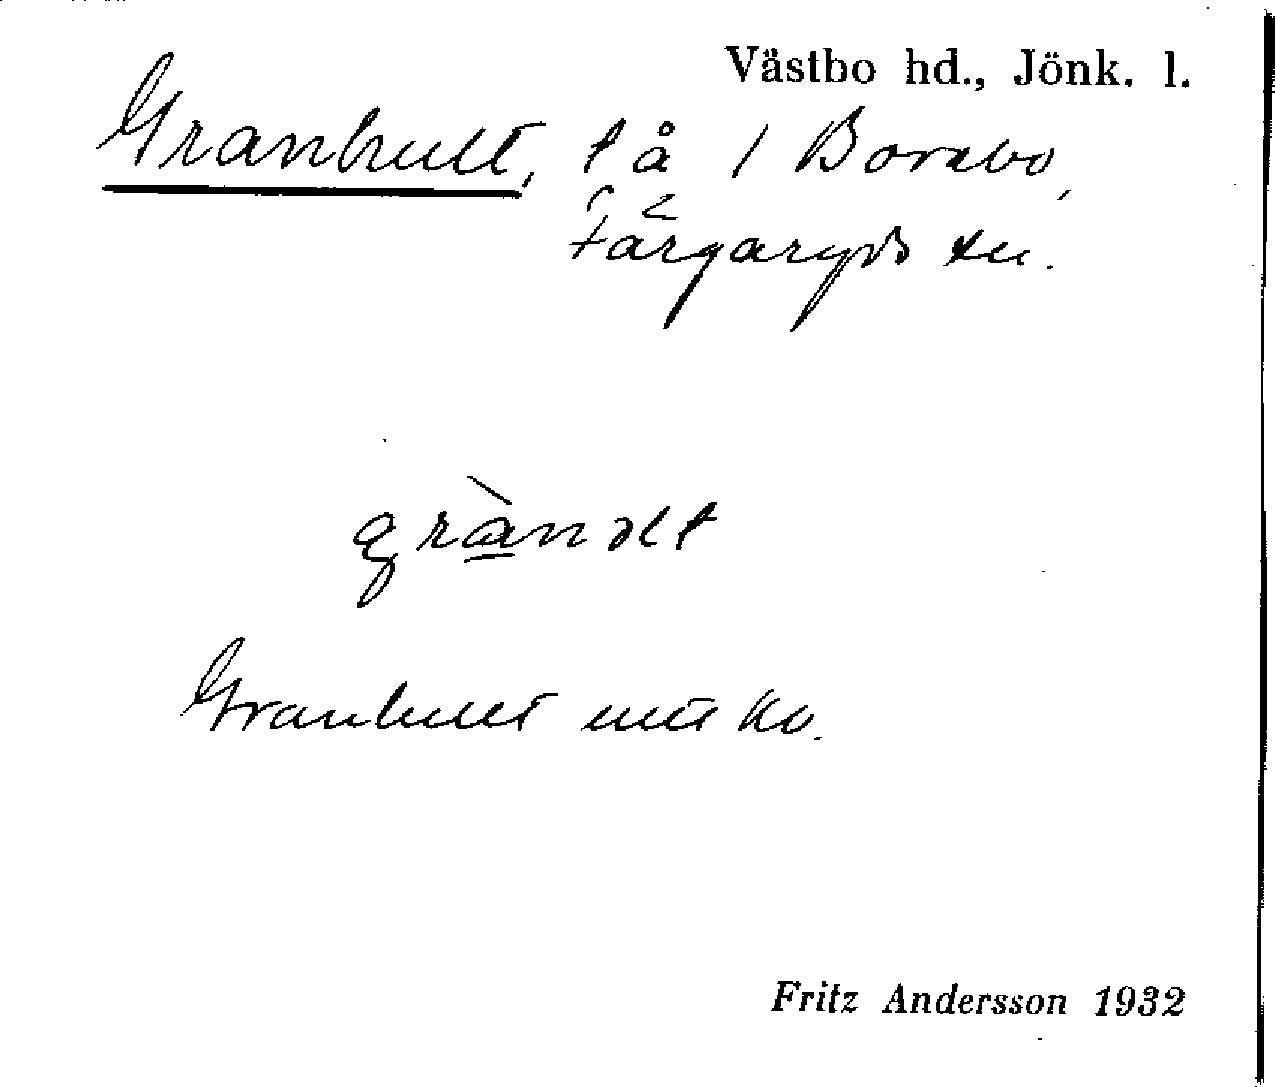 Västbo hd., Jönk. l.
Granhult, l å / Borabo,
Färgaryds sn.
gràn əlt
Granhult
Fritz Andersson 1932